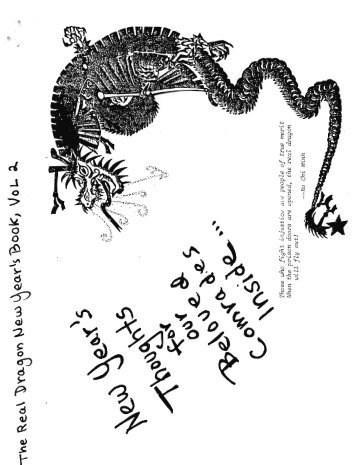 The Real Dragon New Year's Book, Vol 2
New Year's
Thoughts
for
our
Beloved
Comrades
Inside...
Those who fight injustice are people of true merit
When the prison doors are opened, the real dragon
will fly out!
—Ho Chi Minh